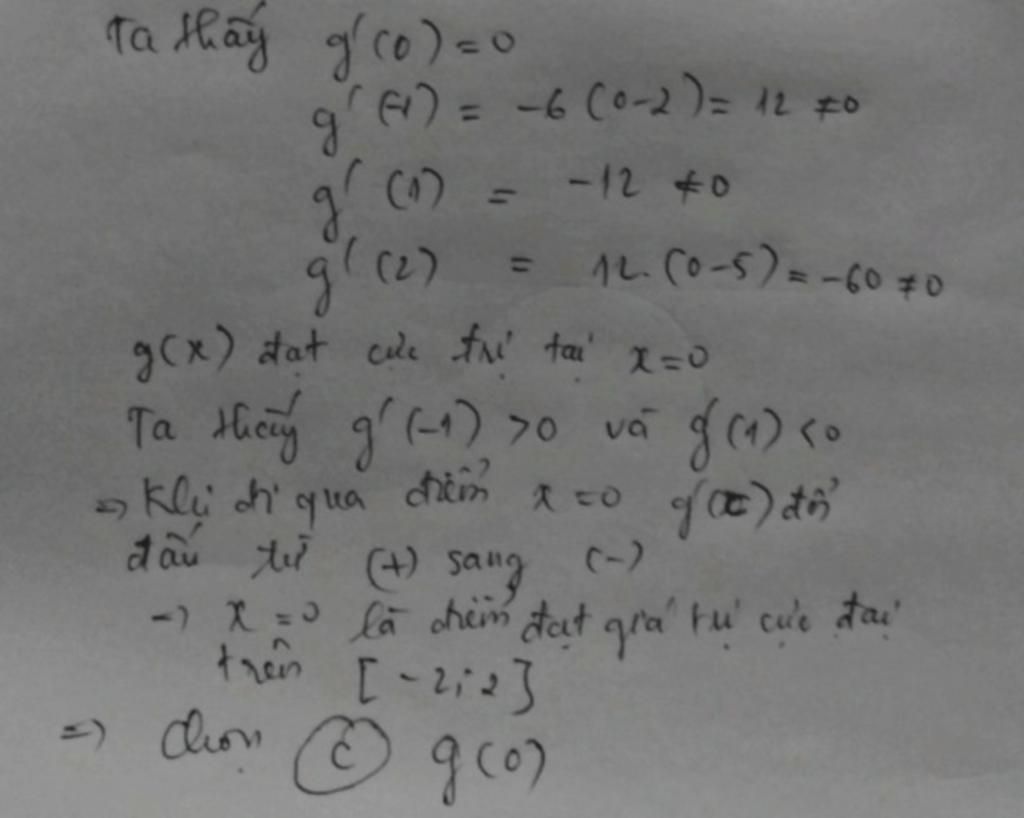 Ta thấy g'(0) = 0
g'(-1) = -6 (0-2) = 12 ≠0
g'(1) = -12 ≠0
g'(2) = 12. (0-5) = -60 ≠0
g(x) đạt cực trị tại x=0
Ta thấy g'(-1) >0 và g'(1) <0
=> Khi đi qua điểm x=0 g'(x) đổi
dấu từ (+) sang (-)
-> x=0 là điểm đạt giá trị cực đại
trên [-2;2]
=> Chọn C g(0)